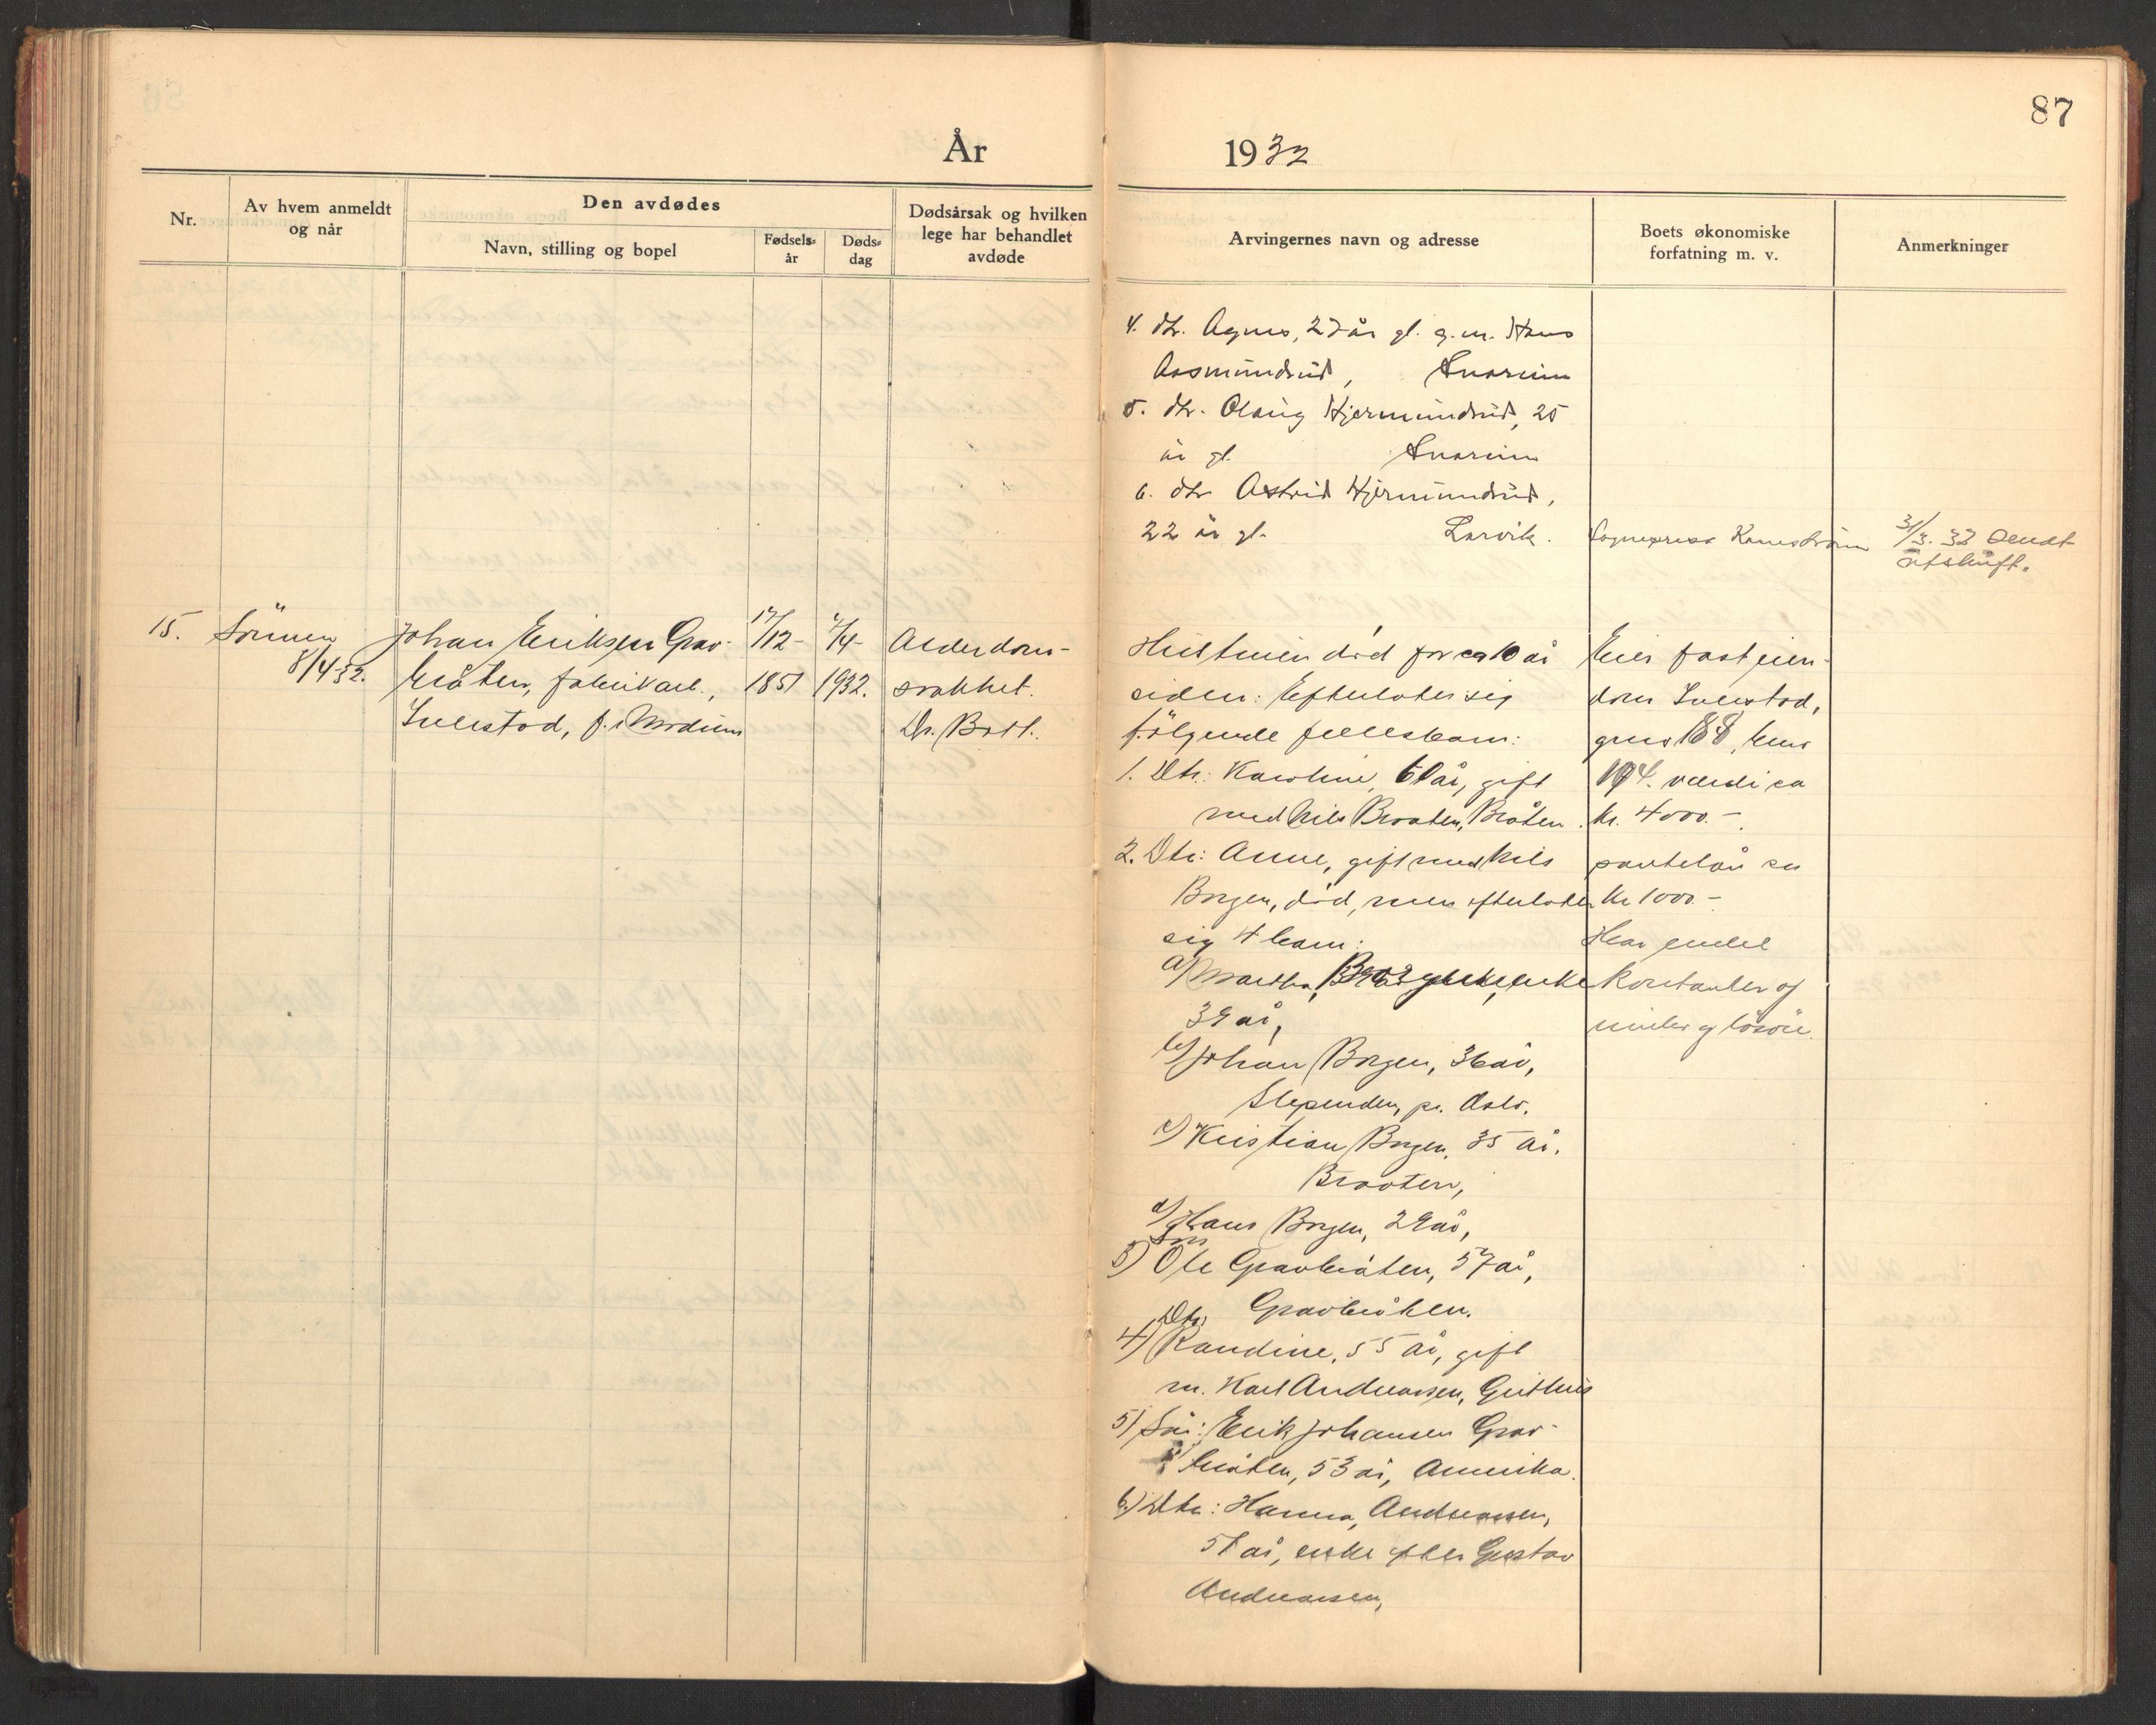 87
År 1932
Nr.
Av hvem anmeldt
og når
Den avdødes
Navn, stilling og bopel
Fødsels-
år
Døds-
dag
Dødsårsak og hvilken
lege har behandlet
avdøde
Arvingernes navn og adresse
Boets økonomiske
forfatning m. v.
Anmerkninger
4. dtr. Agnes, 27 år gl. g.m. Hans
Aasmundrud, Snarum
5. dtr. Olaug Hjermundrud, 25
år gl. Snarum
6. dtr Astrid Hjermundrud,
22 år gl. Larvik.
31/3. 32 Sendt
utskrift.
15.
Sønnen
8/4-32.
Johan Eriksen Grav-
bråten, fabrikarb.,
f. i Modum
17/12-
1851
/4-
1932.
Alderdoms-
svakhet.
Dr. Bott.
Hustruen död for ca 10 år
siden: Efterlater sig
følgende fellesbarn:
1. Dtr: Karoline, år, gift
med Nils Braaten, Bråten.
2. Dtr: Anne, gift med Nils
Borgen, död, men efterlater
sig 4 barn:
a) Martha, enke
39 år,
b) Johan Borgen, 36 år,
Slependen, pr. Oslo.
c) Kristian Borgen, 35 år.
Braaten,
d) Hans Borgen, 29 år,
Søn
3) Ole Gravbråten, 57 år,
Gravbråten.
Dtr.
4) Randine, 55 år, gift
m. Karl Andreassen, Geithus
5) Søn: Erik Johansen Grav-
bråten, 53 år, Amerika.
6.) Dtr: Hanna, Andreassen,
51 år, enke efter Gustav
Andreassen,
Eier fast eien-
dom
gnr 188, bnr
194. værdi ca
kr. 4000.-
pantelån ca
kr 1000.-
Har endel
kontanter og
innbo og lösöre.